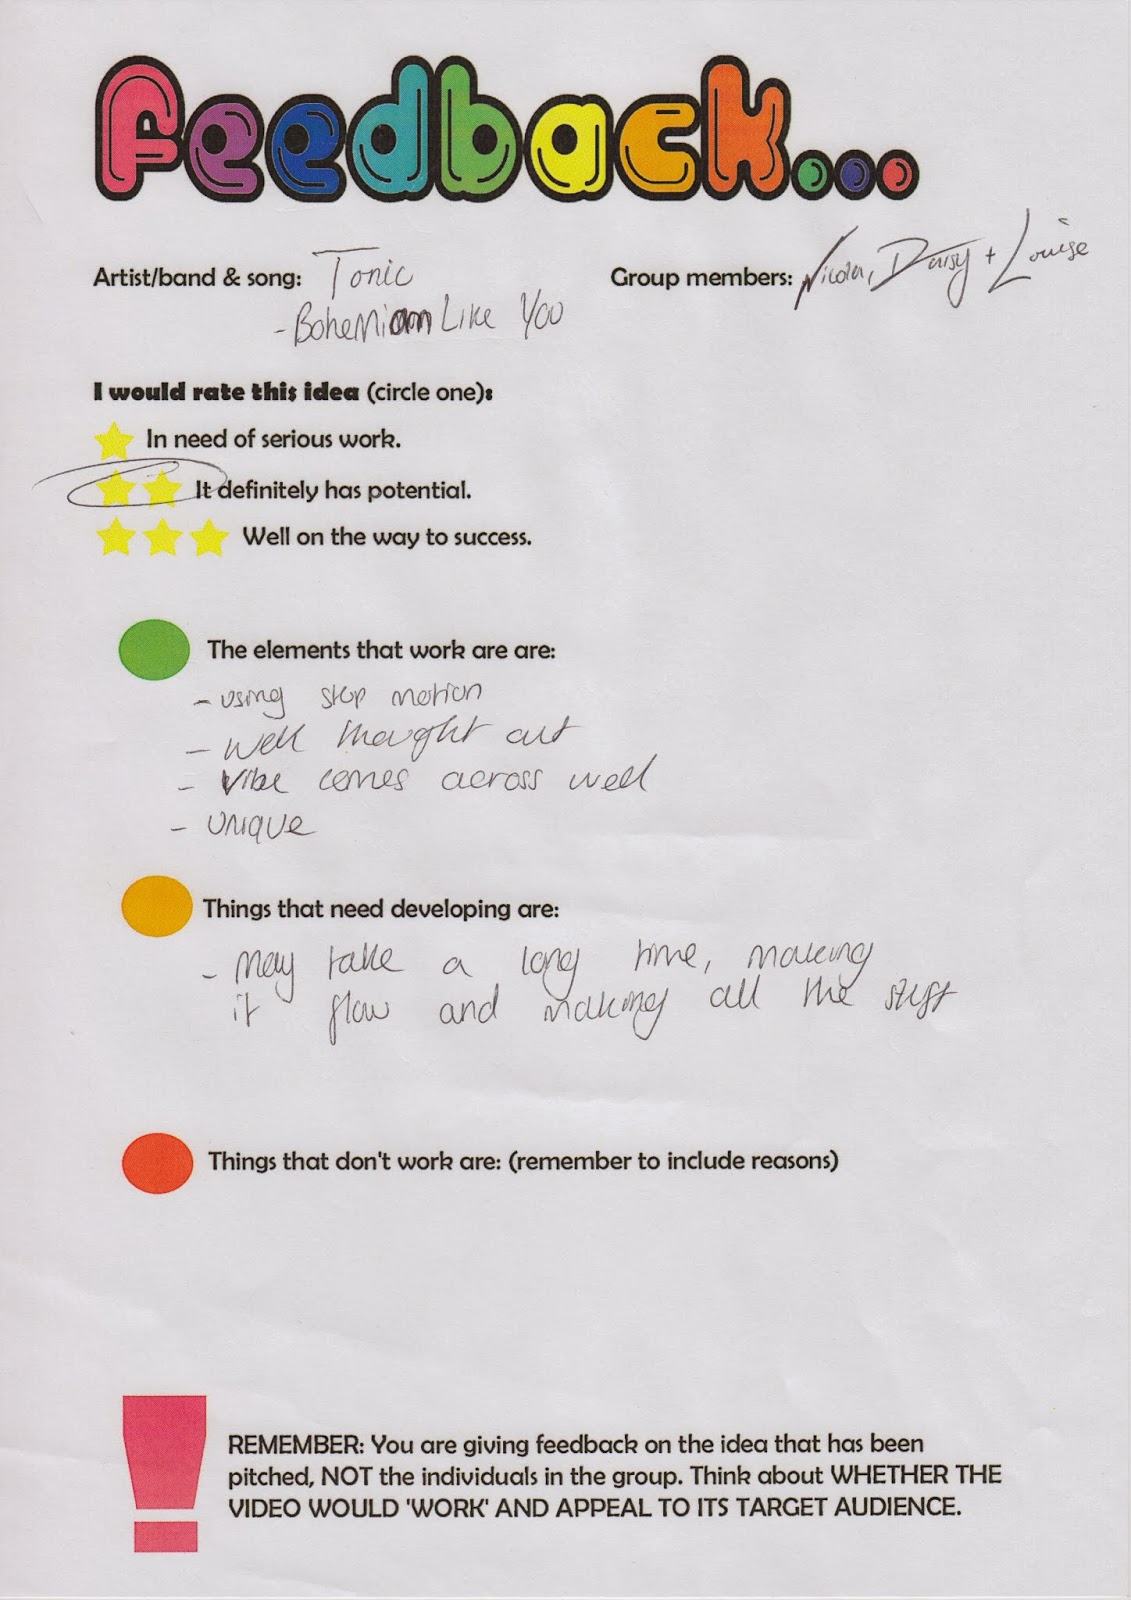 feedback...
Artist/band & song: Tonic
- Bohemian Like You
Group members: Nicola, Daisy + Louise
I would rate this idea (circle one):
In need of serious work.
It definitely has potential.
Well on the way to success.
The elements that work are are:
- using stop motion
- well thought out
- vibe comes across well
- unique
Things that need developing are:
- may take a long time, making
it flow and making all the stuff
Things that don't work are: (remember to include reasons)
REMEMBER: You are giving feedback on the idea that has been
pitched, NOT the individuals in the group. Think about WHETHER THE
VIDEO WOULD 'WORK' AND APPEAL TO ITS TARGET AUDIENCE.